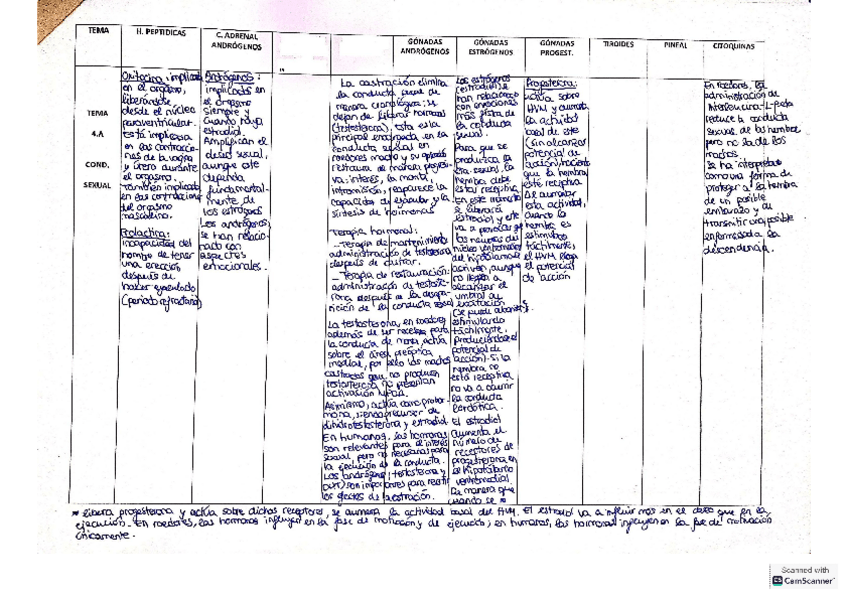 TEMA
H. PEPTIDICAS
C. ADRENAL
ANDRÓGENOS
GÓNADAS
ANDRÓGENOS
GÓNADAS
ESTRÓGENOS
GÓNADAS
PROGEST.
TIROIDES
PINEAL
CITOQUINAS
TEMA
4.A
COND.
SEXUAL
Oxitocina: implicada
en el orgasmo,
liberándose
desde el núcleo
paraventricular.
Está implicada
en las contraccio-
nes de la vagina
y útero durante
el orgasmo.
También implicada
en las contracciones
del orgasmo
masculino.
Prolactina:
incapacidad del
hombre de tener
una erección
después de
haber eyaculado
(periodo refractario)
Andrógenos:
implicados en
el orgasmo
siempre y
cuando haya
estradiol.
Amplifican el
deseo sexual,
aunque este
dependa
fundamental-
mente de
los estrógenos
Los andrógenos
se han relacio-
nado con
aspectos
emocionales.
La castración elimina
la conducta sexual de
manera cronológica: se
dejan de liberar hormonas
(testosterona), esta es la
principal encargada en la
conducta sexual en
roedores macho y su
restaura de manera progresi-
va: interés, la monta,
intromisión, reaparece la
capacidad de eyacular y la
síntesis de hormonas
Terapia hormonal:
- Terapia de mantenimiento
administración de testosterona
después de castrar.
- Terapia de restauración:
administración de testoste-
rona después de la desapa-
rición de la conducta sexual
La testosterona, en roedores,
además de ser necesaria para
la conducta de monta, actúa
sobre el área preóptica
medial, por ello los machos
castrados que no producen
testosterona no presentan
activación
Asimismo, actúa como prohor-
mona, siendo precursor de
dihidrotestosterona y estradiol
En humanos, las hormonas
son relevantes para el interés
sexual pero no necesarias para
la ejecución de la conducta.
Los andrógenos (testosterona y
DHT) son importantes para revertir
los efectos de la castración.
Los estrógenos
(estradiol) se
han relacionado
con emociones
más
la conducta
sexual.
Para que se
produzca la
sexual, la
hembra debe
estar receptiva
En este momento
se liberará
estradiol y este
va a provocar que
las neuronas del
núcleo ventromedial
del hipotálamo se
activen, aunque
no llegan a
alcanzar el
umbral de
excitación
(se puede
estimulando
táctilmente,
produciéndose el
potencial de
acción). Si la
hembra no
está receptiva
no va a ocurrir
la conducta
lordótica.
El estradiol
aumenta el
número de
receptores de
progesterona en
el hipotálamo
ventromedial.
De manera que
cuando se *
Progesterona:
actúa sobre
HVM y aumenta
la actividad
basal de este
(sin alcanzar
potencial de
acción) haciendo
que la hembra
esté receptiva
Al aumentar
esta actividad,
cuando la
hembra es
estimulada
táctilmente,
el HVM llega
al potencial
de acción
En roedores, la
administración de
Interleucina-1-beta
reduce la conducta
sexual de las hembras
pero no la de los
machos.
Se ha interpretado
como una forma de
proteger a la hembra
de un posible
embarazo y de
transmitir una posible
enfermedad a la
descendencia.
* libera progesterona y actúa sobre dichos receptores, se aumenta la actividad basal del HVM. El estradiol va a influir más en el deseo que en la
ejecución. En roedores, las hormonas influyen en la fase de motivación y de ejecución; en humanos, las hormonas influyen en la fase de motivación
únicamente.
Scanned with
CamScanner